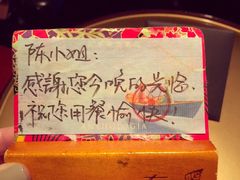 陈小姐:
感謝您今晚的光临.
祝您用餐愉快!